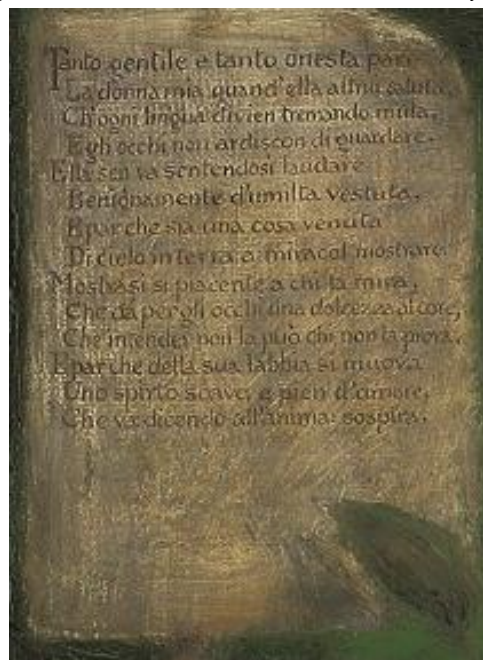 Tanto gentile e tanto onesta pare
La donna mia quand'ella altrui saluta,
Ch'ogni lingua divien tremando muta,
E gli occhi non ardiscon di guardare.
Ella sen va sentendosi laudare
Benignamente d'umiltà vestuta,
E par che sia una cosa venuta
Di cielo in terra a miracol mostrare.
Mostrasi sì piacente a chi la mira,
Che dà per gli occhi una dolcezza al core,
Che intender non la può chi non la prova.
E par che della sua labbia si muova
Uno spirto soave, e pien d'amore,
Che va dicendo all'anima: sospira.